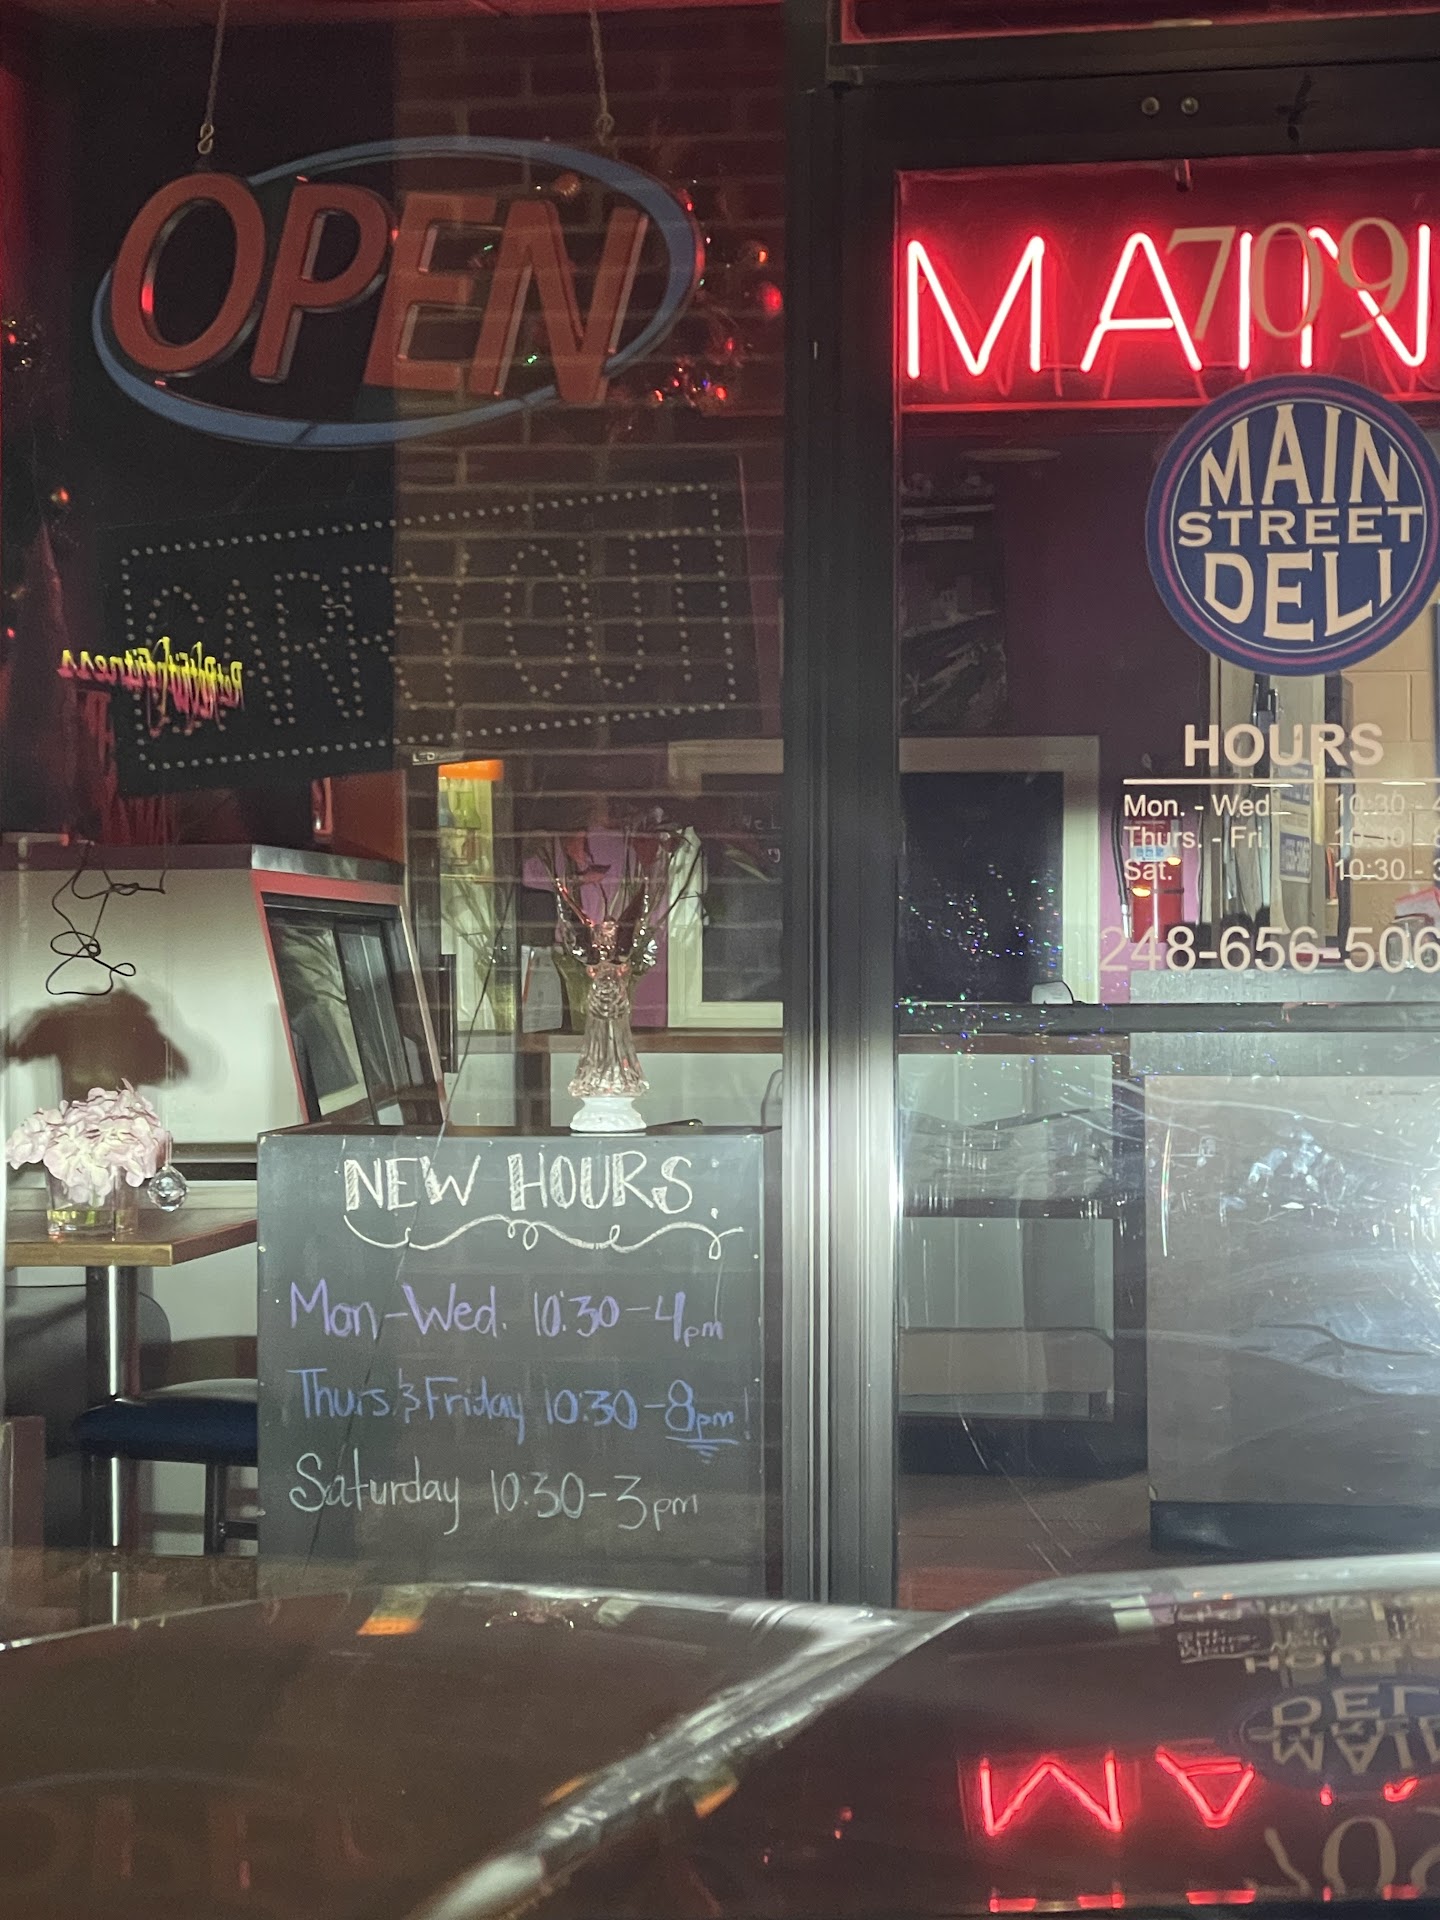 OPEN
CARRYOUT
MAIN
709
MAIN
STREET
DELI
HOURS
Mon. - Wed. 10:30 - 4
Thurs. - Fri. 10:30 - 8
Sat. 10:30 - 3
248-656-506
NEW HOURS:
Mon-Wed. 10:30-4pm
Thurs. & Friday 10:30-8pm!
Saturday 10:30-3pm